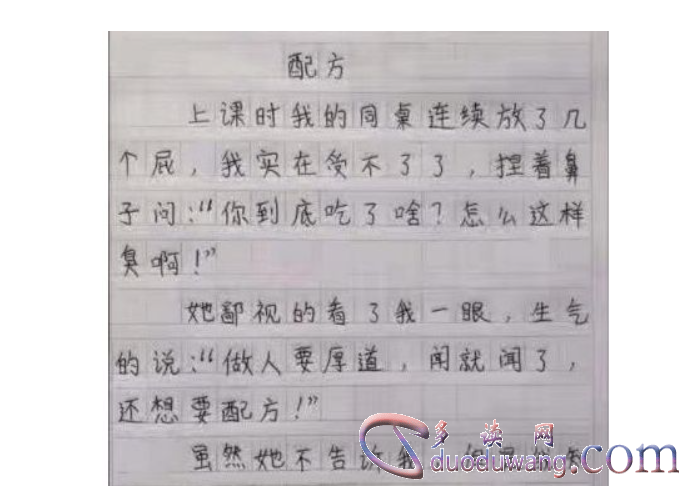 配方
上课时我的同桌连续放了几
个屁，我实在受不了了，捏着鼻
子问：“你到底吃了啥？怎么这样
臭啊！”
她鄙视的看了我一眼，生气
的说：“做人要厚道，闻就闻了，
还想要配方！”
虽然她不告诉我
多读网
duoduwang.com